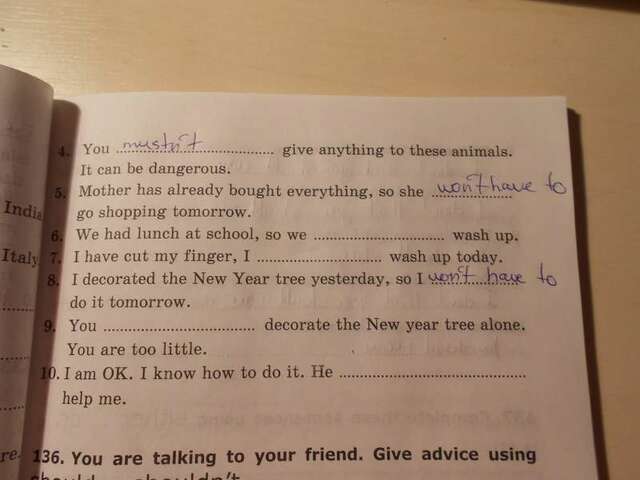 4. You mustn't give anything to these animals.
It can be dangerous.
5. Mother has already bought everything, so she won't have to
go shopping tomorrow.
India
6. We had lunch at school, so we .............................. wash up.
Italy
7. I have cut my finger, I .............................. wash up today.
8. I decorated the New Year tree yesterday, so I won't have to
do it tomorrow.
9. You .............................. decorate the New year tree alone.
You are too little.
10. I am OK. I know how to do it. He ..............................
help me.
re.
136. You are talking to your friend. Give advice using
should shouldn't